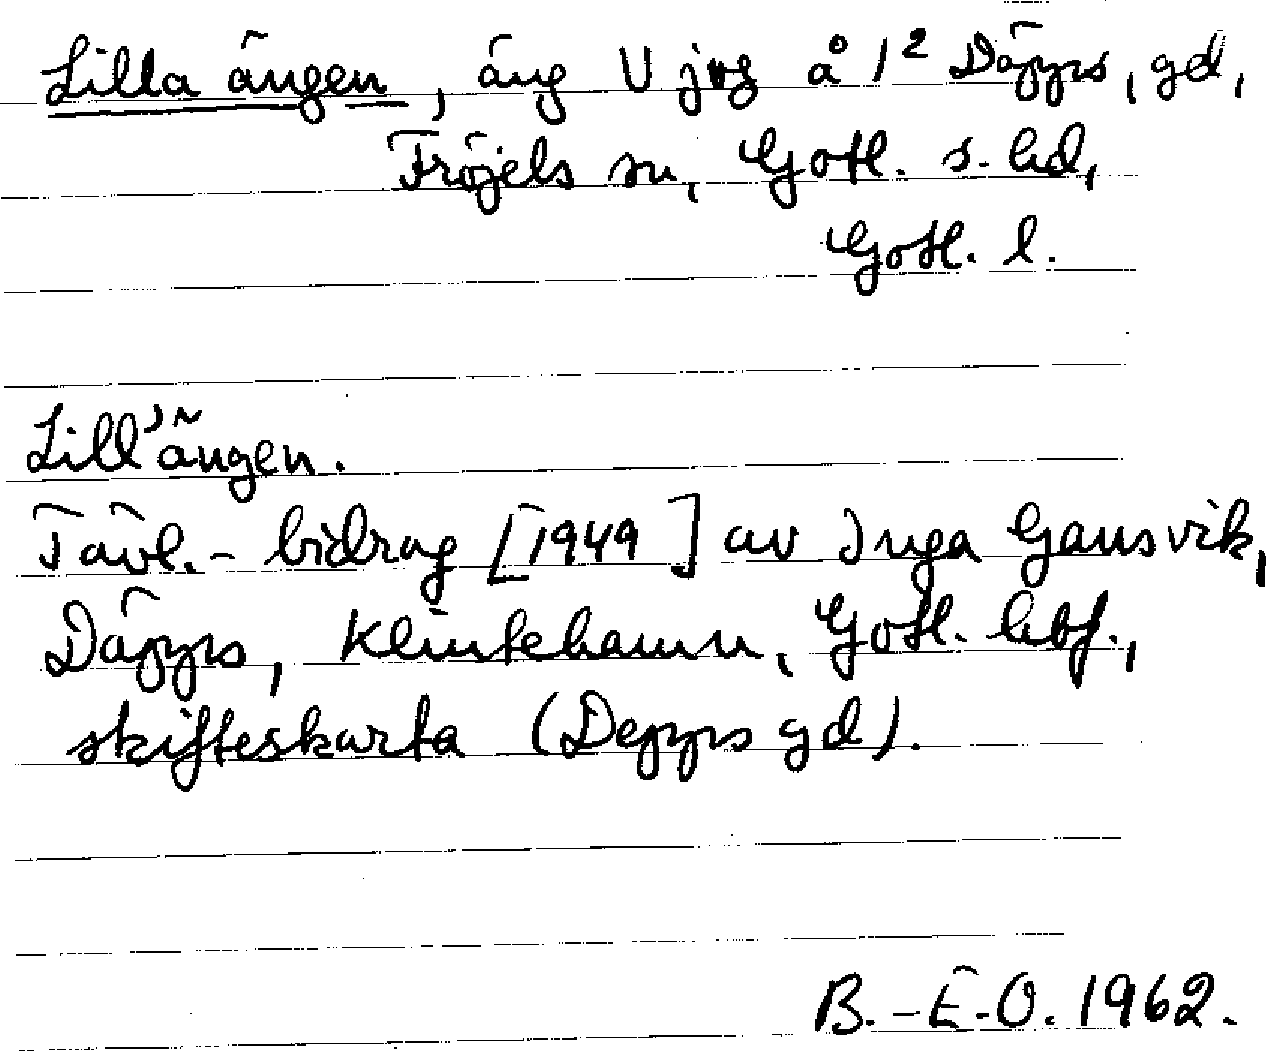 Lilla ängen, äng V jvg å 1² Däpps, gd,
Fröjels sn, Gotl. s. hd,
Gotl. l.
Lill'ängen.
Tävl.-bidrag [1949] av Inga Gansvik,
Däpps, Klintehamn, Gotl. hbf.,
skifteskarta (Depps gd).
B.-E.O. 1962.